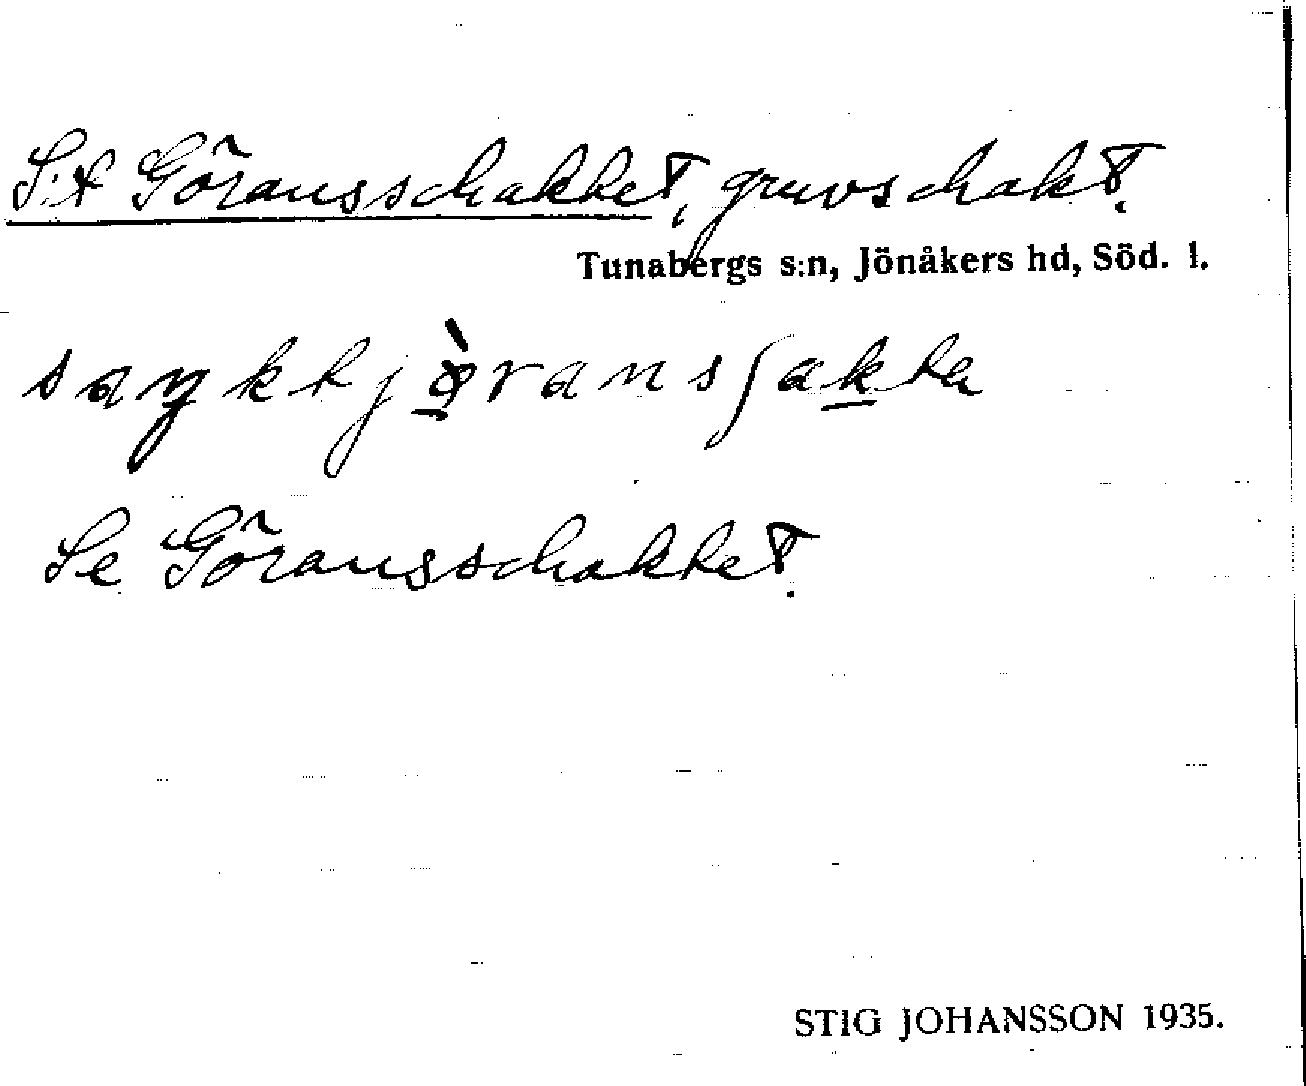 S:t Göransschaktet, gruvschakt.
Tunabergs s:n, Jönåkers hd, Söd. l.
saŋktjø̀ransʃakta
Se Göransschaktet.
STIG JOHANSSON 1935.